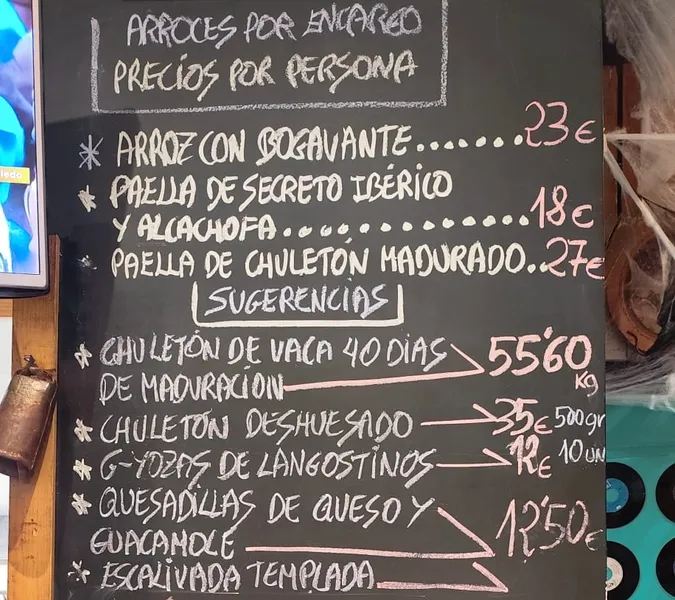 ARROCES POR ENCARGO
PRECIOS POR PERSONA
* ARROZ CON BOGAVANTE.......23€
* PAELLA DE SECRETO IBÉRICO
Y ALCACHOFA..............18€
* PAELLA DE CHULETÓN MADURADO..27€
SUGERENCIAS
* CHULETÓN DE VACA 40 DIAS 55'60
DE MADURACIÓN KG
* CHULETÓN DESHUESADO 35€ 500gr
* G-YOZAS DE LANGOSTINOS 12€ 10 UN
* QUESADILLAS DE QUESO Y
GUACAMOLE 12'50€
* ESCALIVADA TEMPLADA